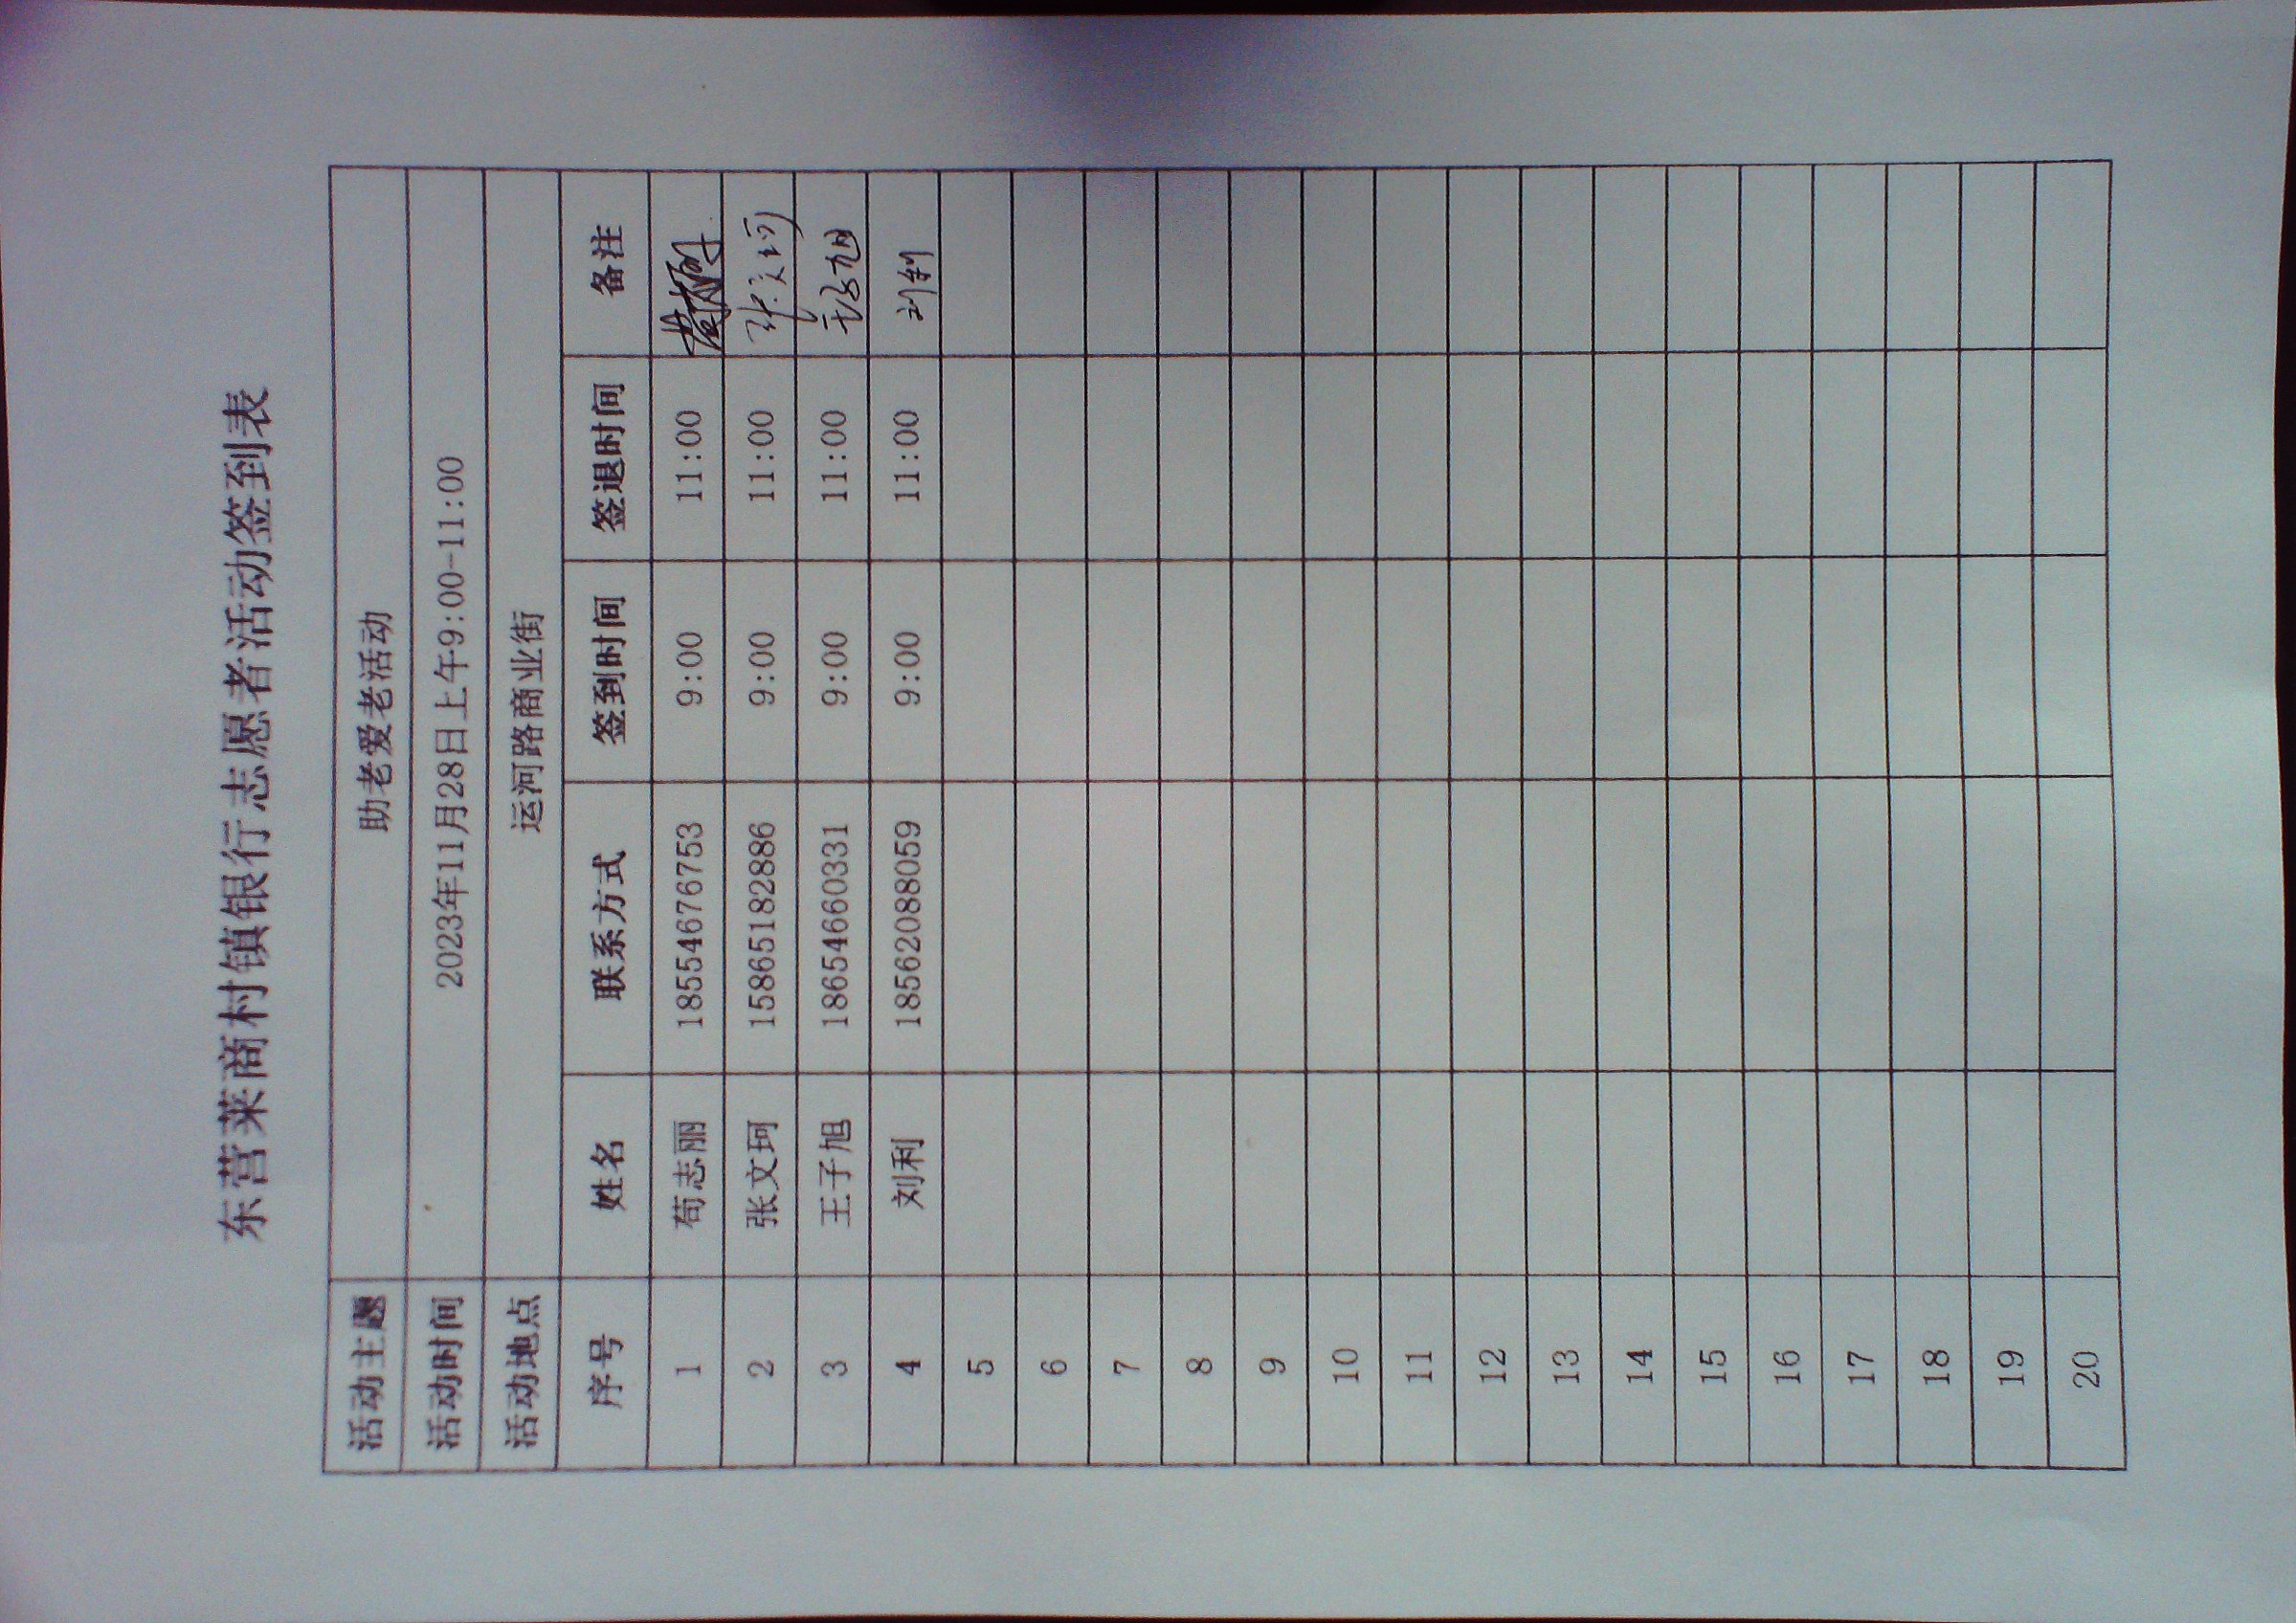 东营莱商村镇银行志愿者活动签到表
活动主题 助老爱老活动
活动时间 2023年11月28日上午9:00-11:00
活动地点 运河路商业街
序号 姓名 联系方式 签到时间 签退时间 备注
1 苟志丽 18554676753 9:00 11:00
2 张文珂 15865182886 9:00 11:00 张文珂
3 王子旭 18654660331 9:00 11:00 王子旭
4 刘利 18562088059 9:00 11:00 刘利
5
6
7
8
9
10
11
12
13
14
15
16
17
18
19
20